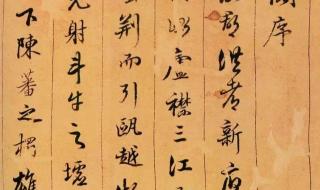 閣序
故郡洪都新府
衡廬襟三江
荊而引甌越
光射斗牛之墟
下陳蕃之榻雄